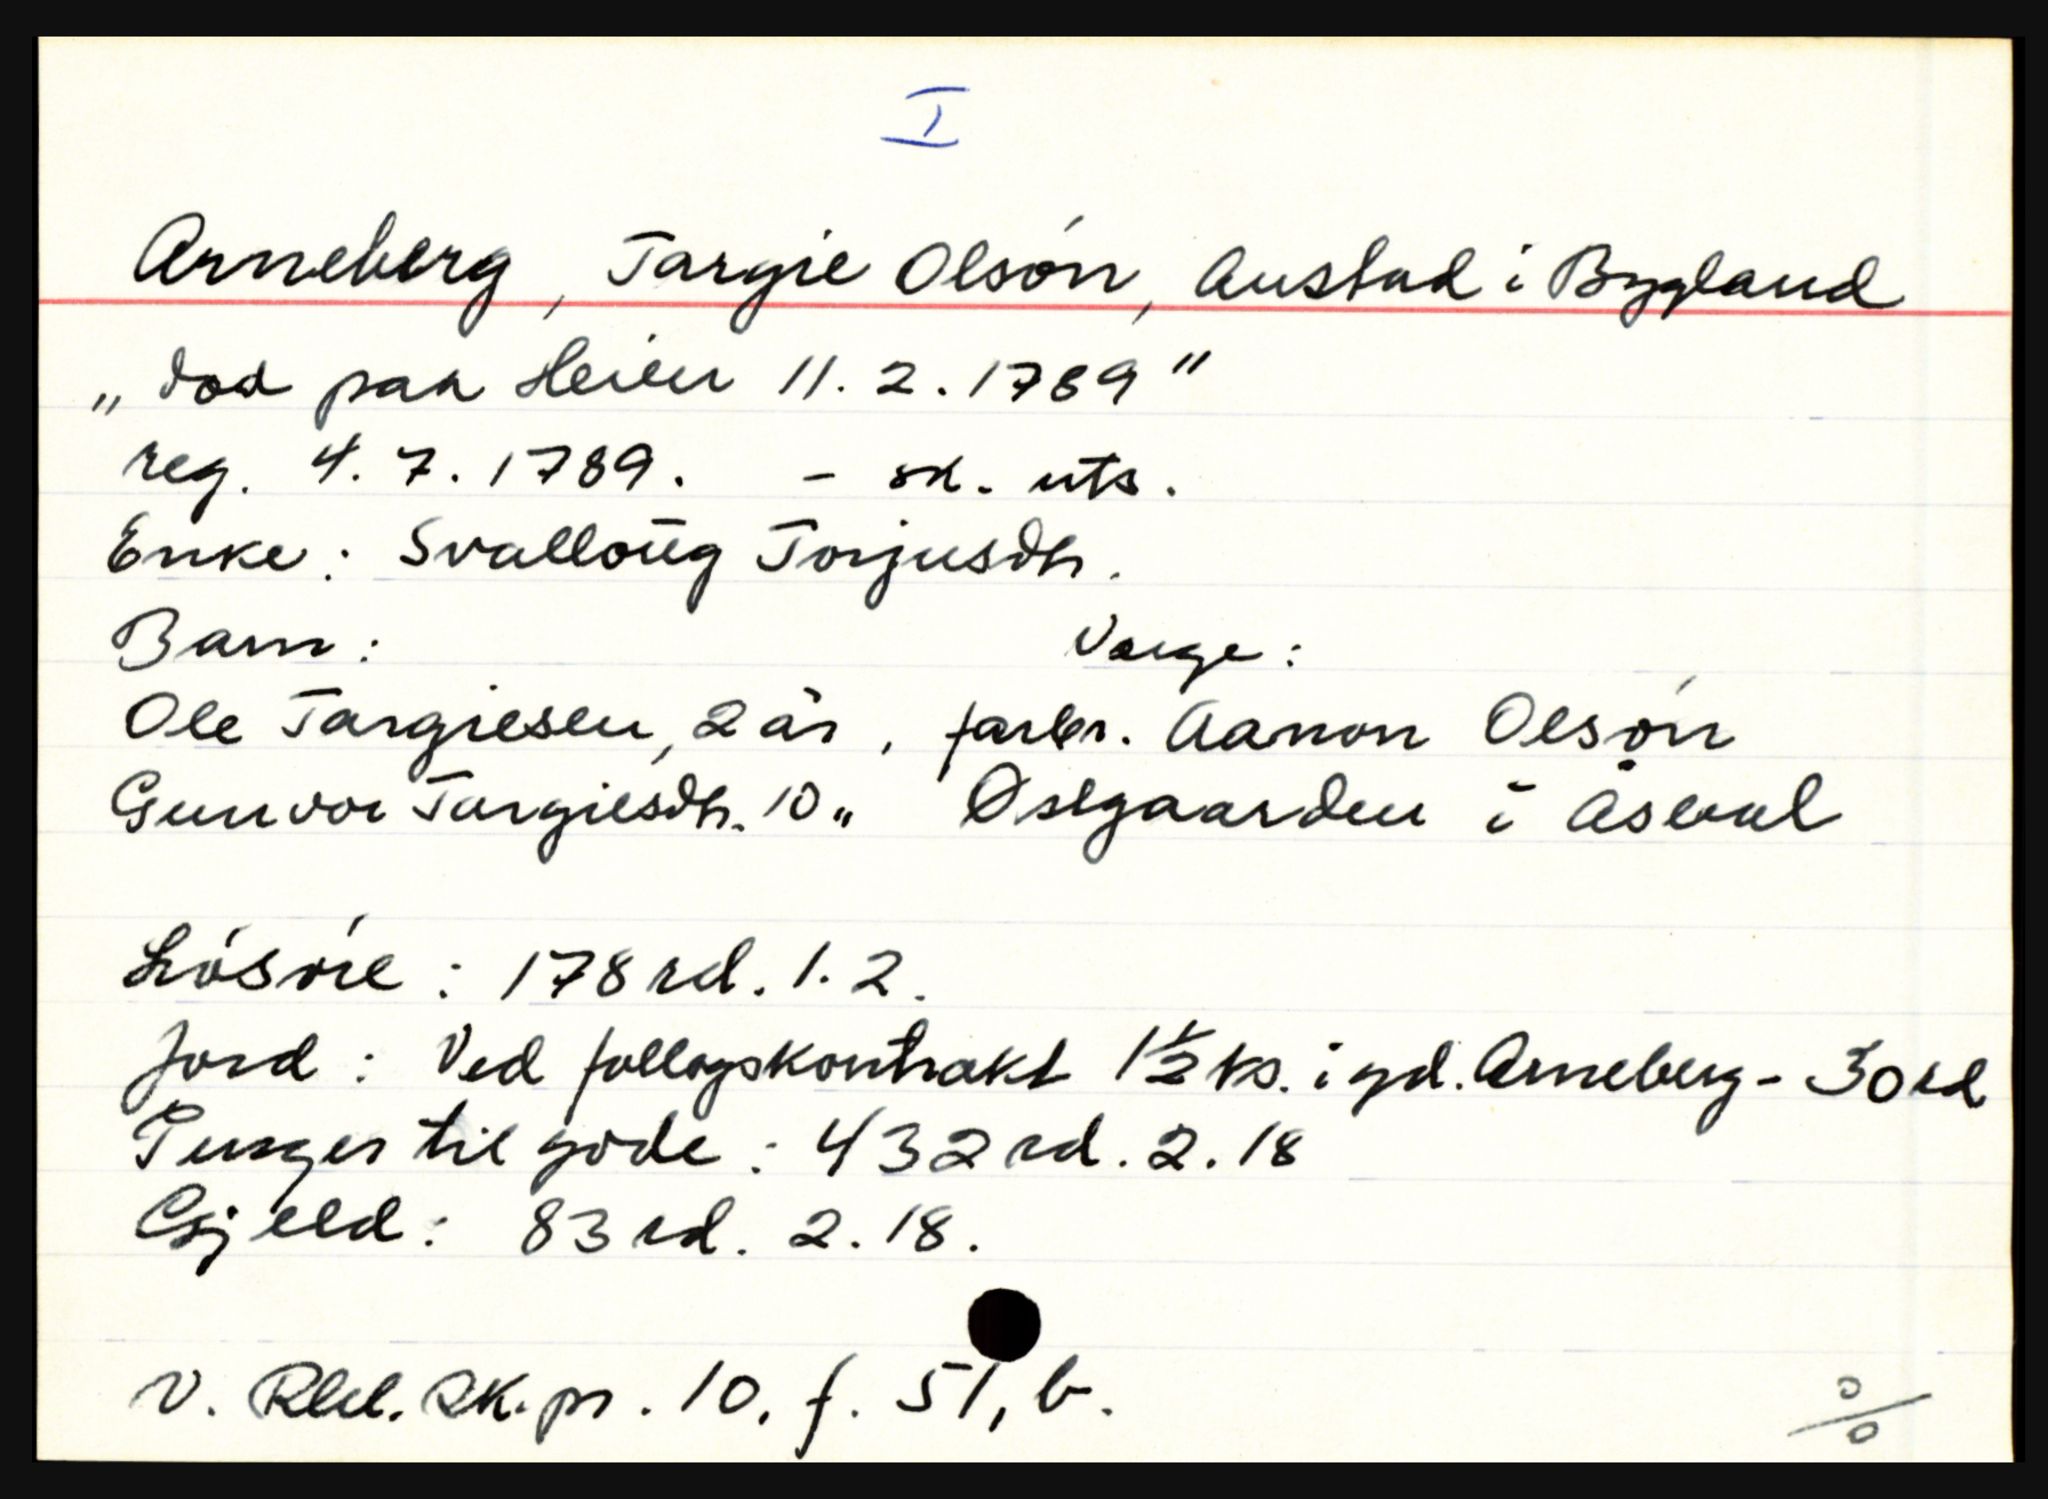 I
Arneberg, Targie Olsón, Austad i Bygland
„ död paa Heien 11.2.1789"
reg. 4.7.1789. - sk. uts.
Enke: Svalloüg Torjusdtr.
Barn: Verge:
Ole Targiesen, 2 år, farbr. Aanon Olsón
Gunvor Targiesdtr. 10 „ Østgaarden i Åseral
Lösöre: 178 rd. 1. 2.
Jord: Ved follogskontrakt 1 1/2 ks. i gd. Arneberg - 30 rd
Penger til gode: 432 rd. 2. 18
Gjeld: 83 rd. 2. 18.
V. Rbd. Sk. pr. 10. f. 51, b.